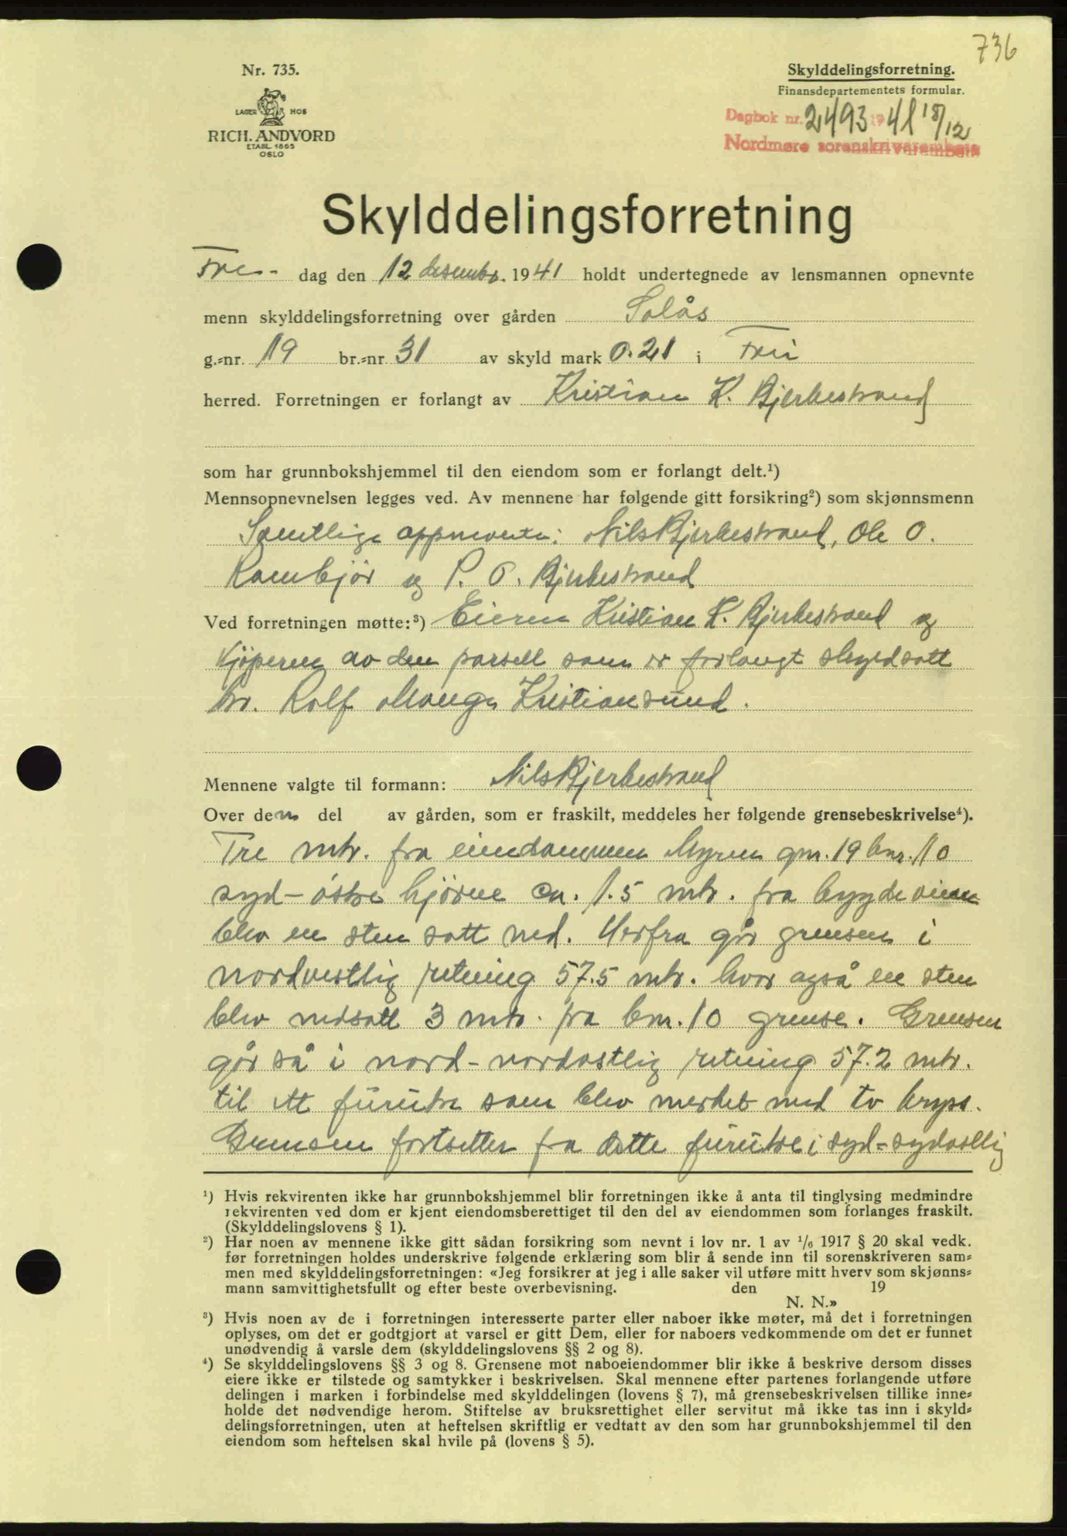 736
Nr. 735.
LAGER HOS
RICH. ANDVORD
ETABL. 1865
OSLO
Skylddelingsforretning.
Finansdepartementets formular.
Dagbok nr. 2493 1941 18/12
Nordmøre sorenskriverembete
Skylddelingsforretning
Fre- dag den 12 desembr. 1941 holdt undertegnede av lensmannen opnevnte
menn skylddelingsforretning over gården Solås
g.=nr. 19 br.=nr. 31 av skyld mark 0.21 i Frei
herred. Forretningen er forlangt av Kristian K. Bjerkestrand
som har grunnbokshjemmel til den eiendom som er forlangt delt.¹)
Mennsopnevnelsen legges ved. Av mennene har følgende gitt forsikring²) som skjønnsmenn
Samtlige oppnevnte: Nils Bjerkestrand, Ole O.
Rambjør og P. O. Bjerkestrand
Ved forretningen møtte:³) Eieren Kristian K. Bjerkestrand og
kjøperen av den parsell som er forlangt skyldsatt
hr. Rolf Mauger Kristiansund.
Mennene valgte til formann: Nils Bjerkestrand
Over den del av gården, som er fraskilt, meddeles her følgende grensebeskrivelse⁴).
Tre mtr. fra eiendommen Myren gnr. 19 bnr. 10
syd-østre hjørne ca. 1.5 mtr. fra bygdeveien
blev en sten satt ned. Herfra går grensen i
nordvestlig retning 57.5 mtr. hvor også en sten
blev nedsatt 3 mtr. fra bnr. 10 grense. Grensen
går så i nord-nordostlig retning 57.2 mtr.
til ett furutre som blev merket med to kryss.
Grensen fortsetter fra dette furutre i syd-sydostlig
¹) Hvis rekvirenten ikke har grunnbokshjemmel blir forretningen ikke å anta til tinglysing medmindre
rekvirenten ved dom er kjent eiendomsberettiget til den del av eiendommen som forlanges fraskilt.
(Skylddelingslovens § 1).
²) Har noen av mennene ikke gitt sådan forsikring som nevnt i lov nr. 1 av 1/6 1917 § 20 skal vedk.
før forretningen holdes underskrive følgende erklæring som blir å sende inn til sorenskriveren sam=
men med skylddelingsforretningen: «Jeg forsikrer at jeg i alle saker vil utføre mitt hverv som skjønns=
mann samvittighetsfullt og efter beste overbevisning. den 19
N. N.»
³) Hvis noen av de i forretningen interesserte parter eller naboer ikke møter, må det i forretningen
oplyses, om det er godtgjort at varsel er gitt Dem, eller for naboers vedkommende om det er funnet
unødvendig å varsle dem (skylddelingslovens §§ 2 og 8).
⁴) Se skylddelingslovens §§ 3 og 8. Grensene mot naboeiendommer blir ikke å beskrive dersom disses
eiere ikke er tilstede og samtykker i beskrivelsen. Skal mennene efter partenes forlangende utføre
delingen i marken i forbindelse med skylddelingen (lovens § 7), må grensebeskrivelsen tillike inne=
holde det nødvendige herom. Stiftelse av bruksrettighet eller servitut må ikke tas inn i skyld=
delingsforretningen, uten at heftelsen skriftlig er vedtatt av den som har grunnbokshjemmel til den
eiendom som heftelsen skal hvile på (lovens § 5).